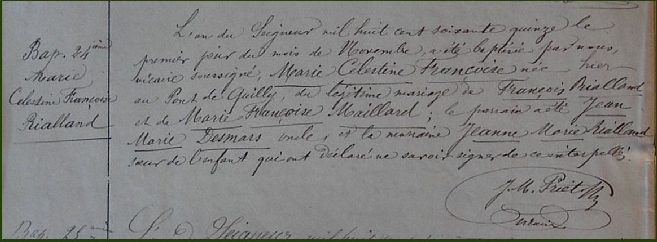 Bap. 24ième
Marie
Celestine Françoise
Rialland
L'an du Seigneur mil huit cent soixante quinze le
premier jour du mois de Novembre, a été baptisée par nous,
vicaire soussigné, Marie Celestine Françoise née hier
au Pont de Quilly, du légitime mariage de François Rialland
et de Marie Françoise Maillard ; le parrain a été Jean
Marie Desmars oncle, et la marraine Jeanne Marie Rialland
sœur de l'enfant qui ont déclaré ne savoir signer de ce interpellés
J. M. Priet
vicaire
Bap. 25ième
Seigneur mil huit